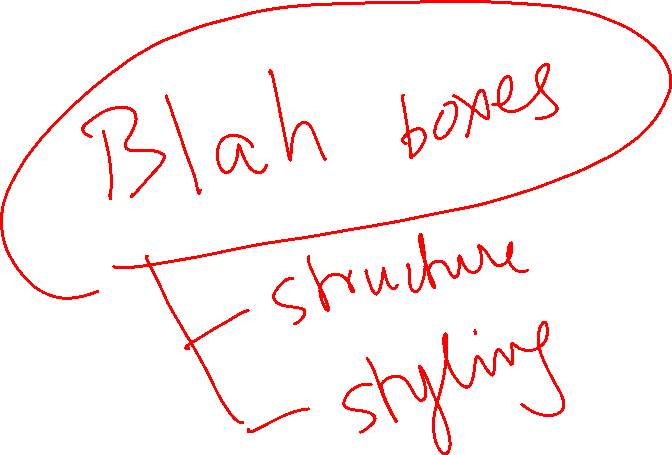 Blah boxes
structure
styling